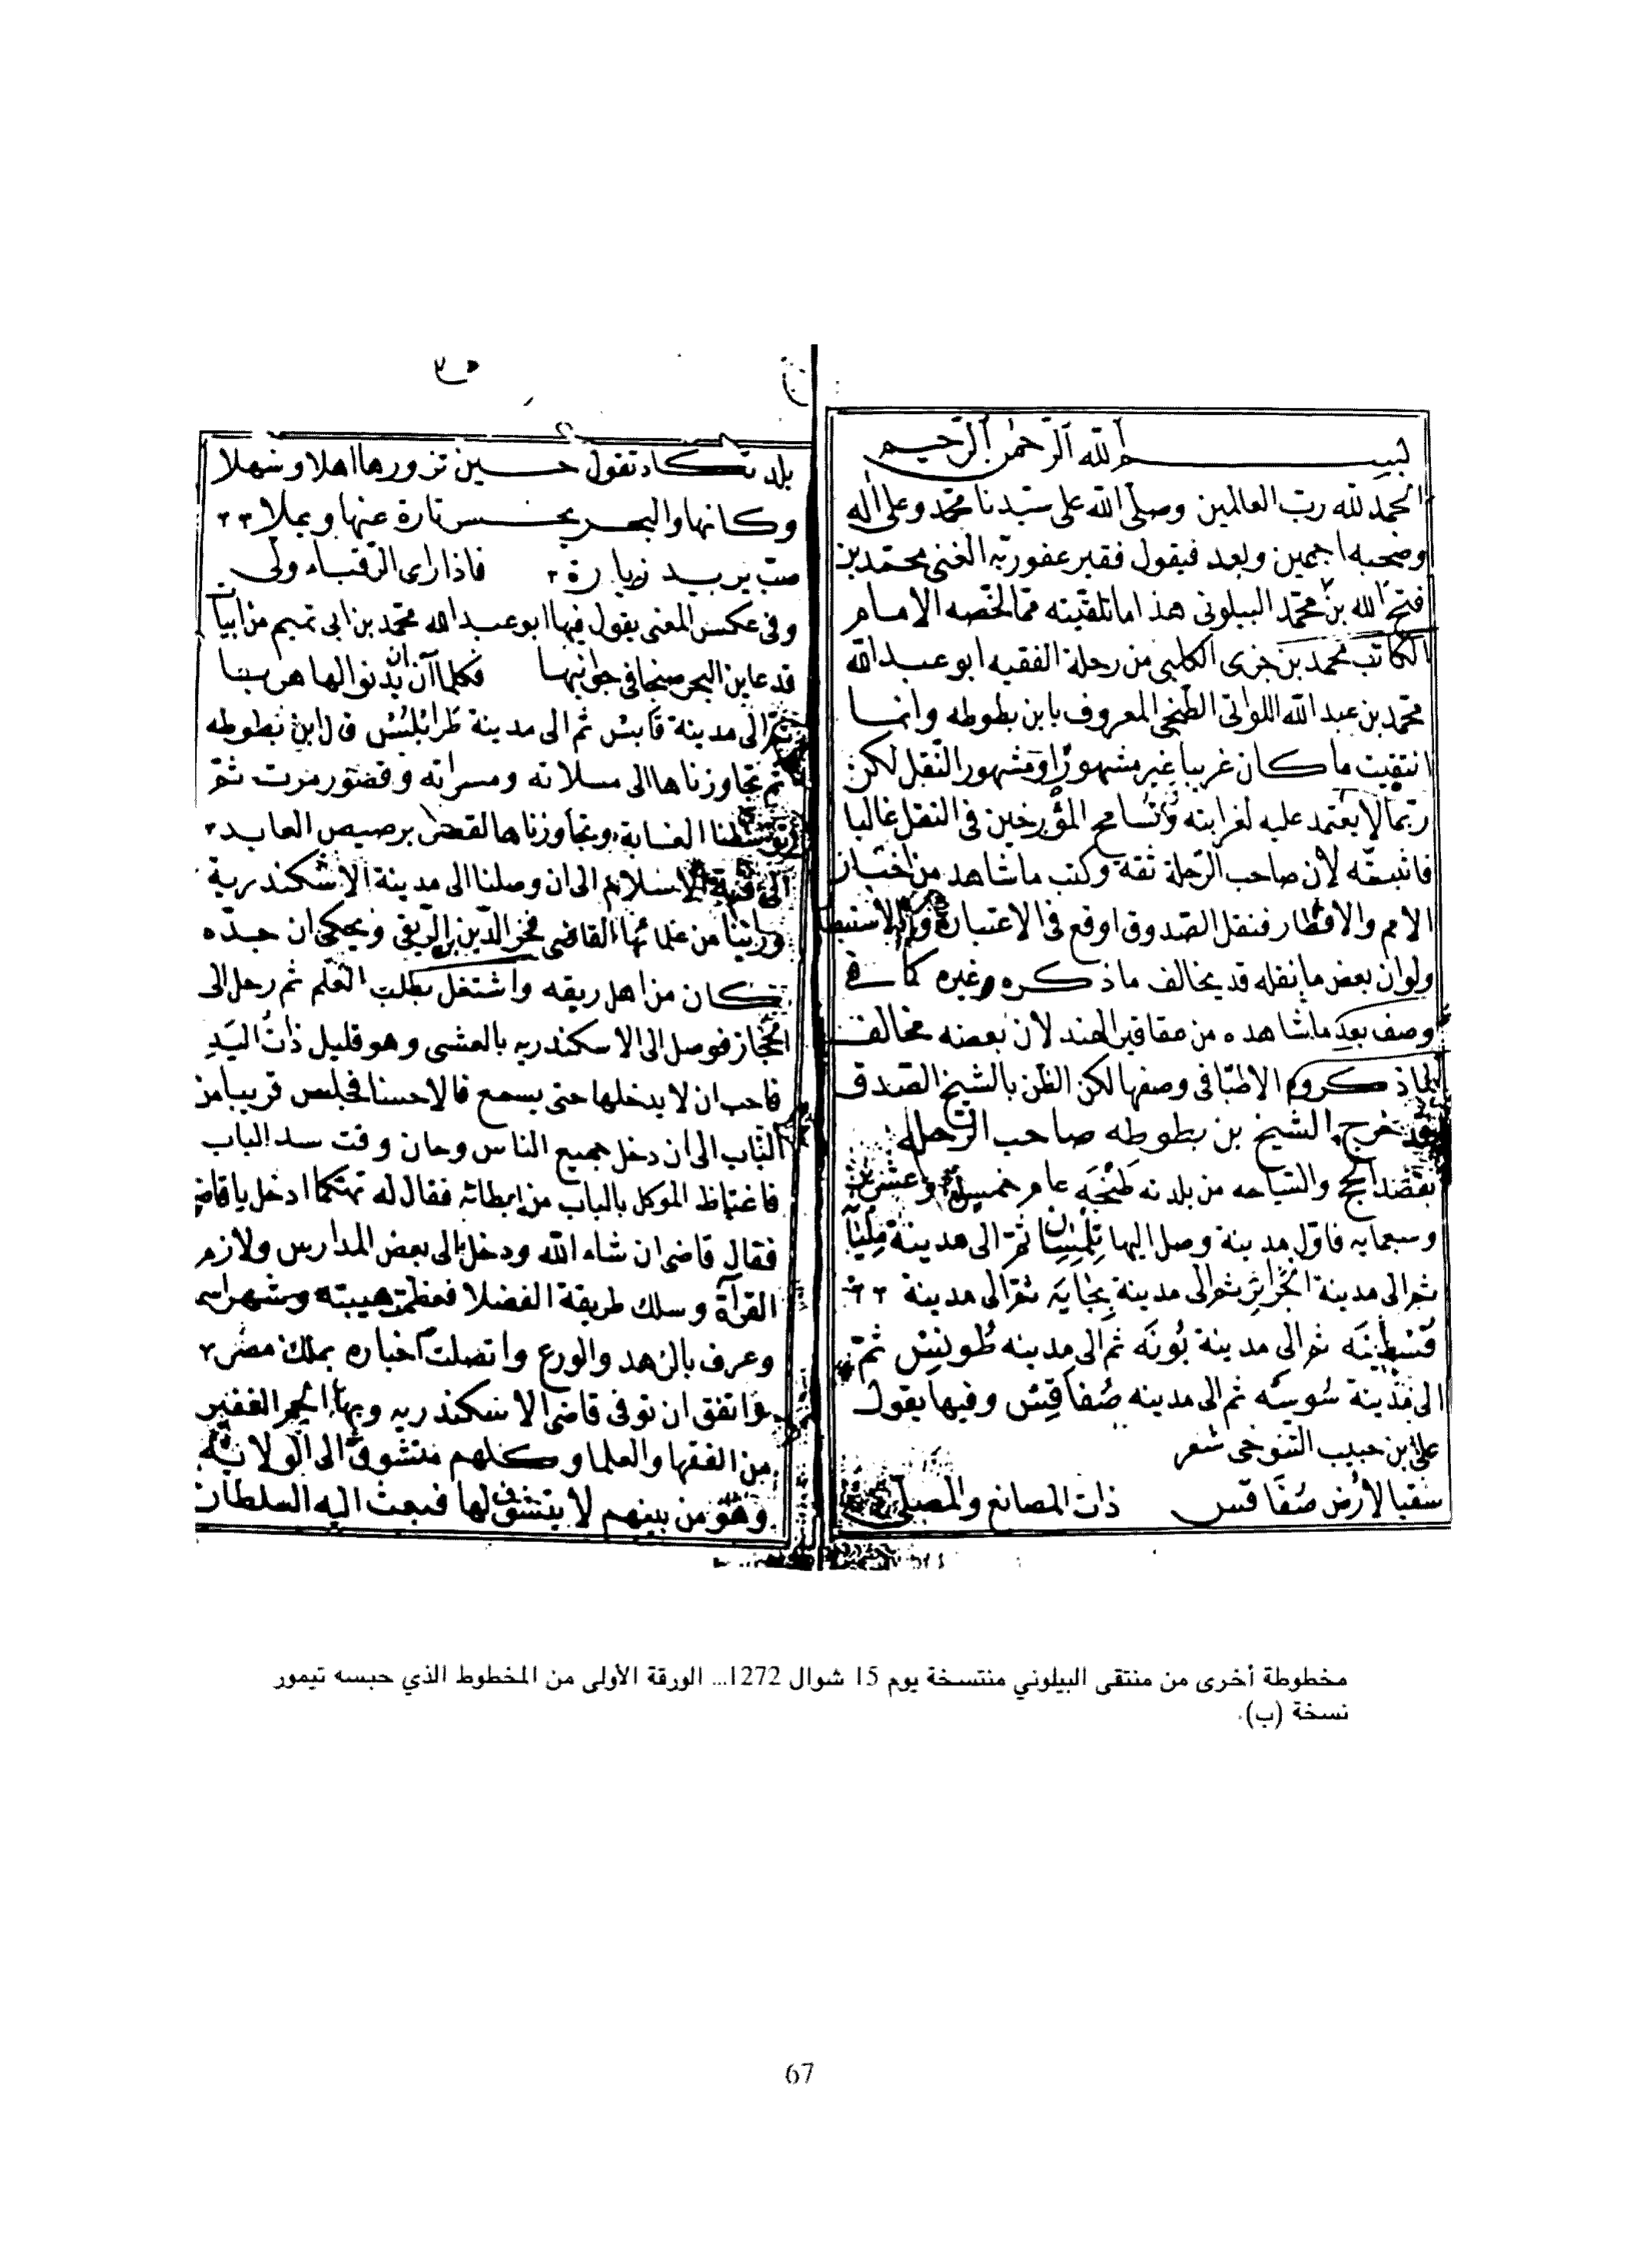 بسم الله الرحمن الرحيم
الحمد لله رب العالمين وصلى الله على سيدنا محمد وعلى آله
وصحبه اجمعين وبعد فيقول فقير عفو ربه الغنى محمد بن
فتح الله بن محمد البيلونى هذا ما تلقيته مما لخصه الامام
الكاتب محمد بن جزى الكلبى من رحلة الفقيه ابو عبد الله
محمد بن عبد الله اللواتى الطنجى المعروف بابن بطوطه وانما
انتقيت ما كان غريبا غير مشهورا ومشهور النقل لكن
ربما لا يعتمد عليه لغرابته وتسامح المؤرخين فى النقل غالبا
فاثبته لان صاحب الرحلة ثقة وكتب ما شاهد من اخبار
الامم والاقطار فنقل الصدوق اوقع فى الاعتبار
ولو ان بعض ما نقله قد يخالف ما ذكره وغيره كما فى
وصف بعد ما شاهده من عقاقير الهند لان بعضه مخالف
لما ذكروه الاطبا فى وصفها لكن الظن بالشيخ الصدق
خرج الشيخ بن بطوطه صاحب الرحله
بقصد الحج والسياحه من بلدته طنجة عام خمسة وعشرين
وسبعمايه فاول مدينة وصل اليها تلمسان ثم الى مدينة مليانا
ثم الى مدينة الجزائر ثم الى مدينة بجاية ثم الى مدينة
قسنطينة ثم الى مدينة بونه ثم الى مدينه طونس ثم
الى مدينة سوسه ثم الى مدينه صفاقس وفيها يقول
على بن حبيب التنوخى شعر
سقيا لارض صفاقس ذات المصانع والمصلى
٣
بلد تكاد تقول حسين تزورها اهلا وسهلا
وكانها والبحر يحسر تارة عنها ويملا
صب يريد زيارة فاذا راى الرقباء ولى
وفى عكس المعنى يقول فيها ابو عبد الله محمد بن ابى تميم من ابيات
قد عاين البحر من جوانبها فكلما آن ان يدنو الها هربا
ثم الى مدينة قابس ثم الى مدينة طرابلس قال ابن بطوطه
ثم تجاوزناها الى مسلاته ومسراته وقصور سرت ثم
توسطنا الغابة وتجاوزناها لقصر برصيص العابد
الى قبة الاسلام الى ان وصلنا الى مدينة الاسكندرية
وراينا من علمائها القاضى فخر الدين بن الريقى ويحكى ان جده
كان من اهل ريقه واشتغل بطلب العلم ثم رحل الى
الحجاز فوصل الى الاسكندريه بالعشى وهو قليل ذات اليد
فاحب ان لا يدخلها حتى يسمع فالا حسنا فجلس قريبا من
الباب الى ان دخل جميع الناس وحان وقت سد الباب
فاغتاظ الموكل بالباب من ابطائه فقال له تهكما ادخل يا قاضى
فقال قاضى ان شاء الله ودخل الى بعض المدارس ولازم
القرآة وسلك طريقة الفضلا فعظمت هيبته وشهر اسمه
وعرف بالزهد والورع واتصلت اخباره بملك مصر
واتفق ان توفى قاضى الاسكندريه وبها الجم الغفير
من الفقها والعلما وكلهم متشوق الى الولايه
وهو من بينهم لا يتشوق لها فبعث اليه السلطان
مخطوطة أخرى من منتقى البيلوني منتسخة يوم 15 شوال 1272... الورقة الأولى من المخطوط الذي حبسه تيمور
نسخة (ب).
67